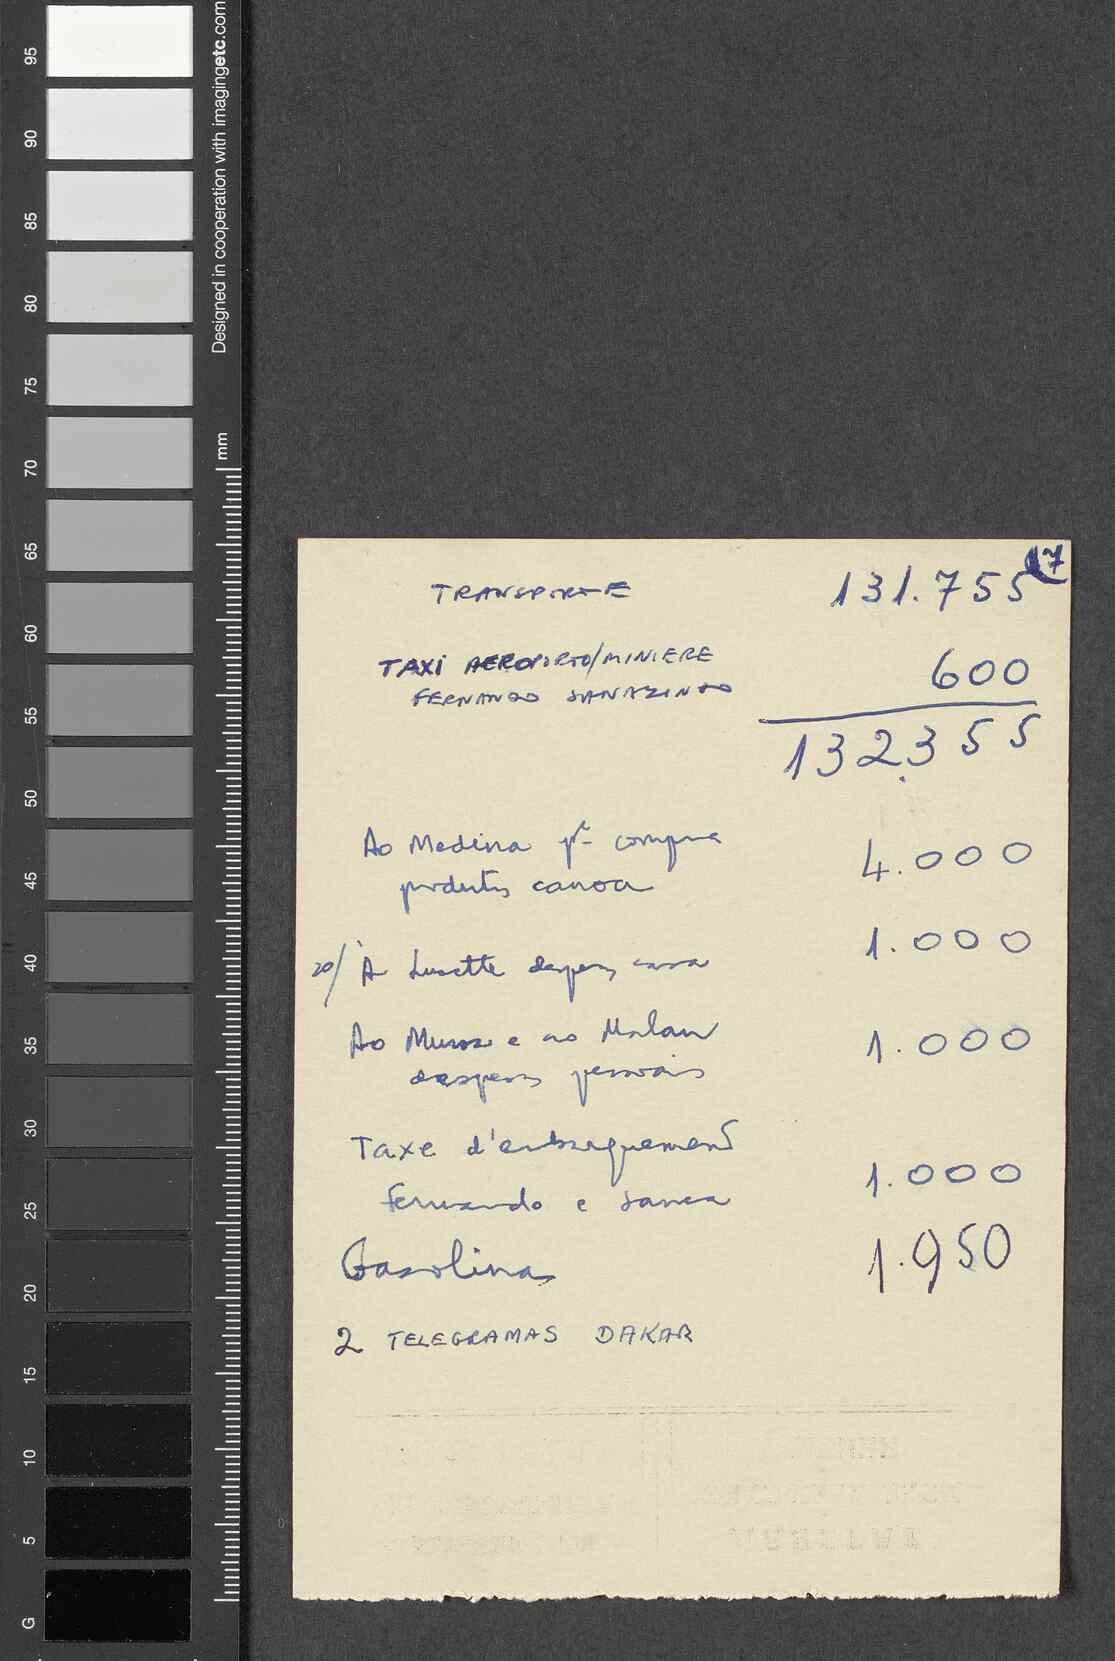 17
TRANSPORTE 131.755
TAXI AEROPORTO/MINIERE 600
FERNANDO
132.355
Ao Medina pª compra 4.000
produtos canoa
1.000
20/ À Lucette despesas casa
Ao e ao Malan 1.000
despesas pessoais
Taxe d'embarquement
Fernando e 1.000
Gasolina 1.950
2 TELEGRAMAS DAKAR
Designed in cooperation with imagingetc.com
mm
95
90
85
80
75
70
65
60
55
50
45
40
35
30
25
20
15
10
5
G